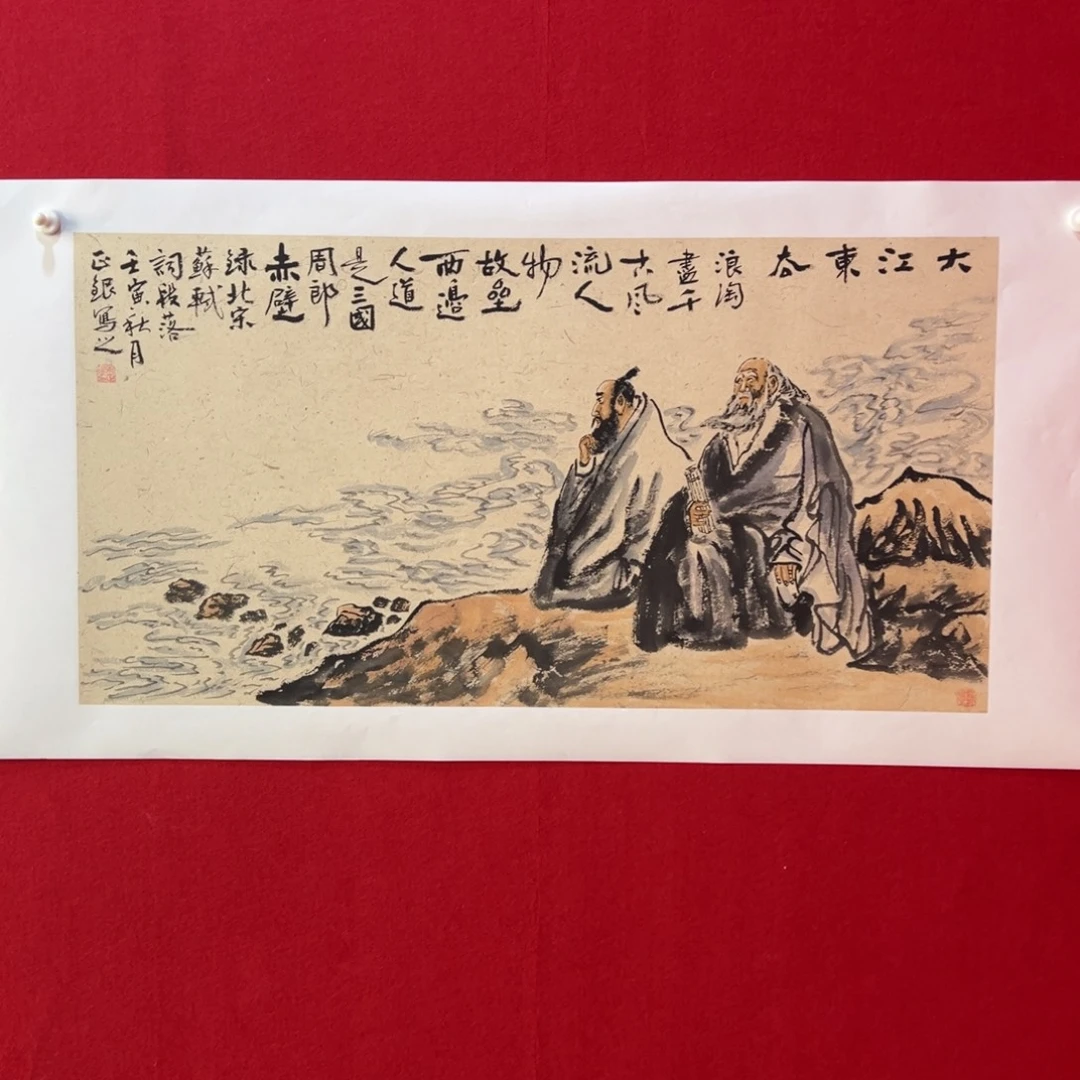 大
江
東
去
浪淘
盡千
古風
流人
物
故壘
西邊
人道
是三國
周郎
赤壁
録北宋
蘇軾
詞段落
壬寅秋月
正銀寫之